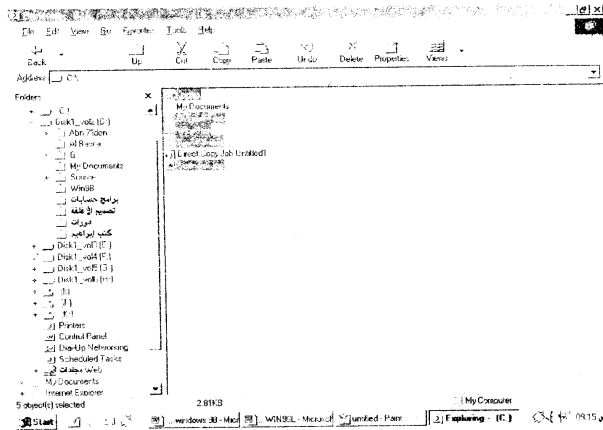 File Edit View Go Favorites Tools Help
Back Up Cut Copy Paste Undo Delete Properties Views
Address C:\
Folders
Disk1_vol2 (D:)
el Basra
G
My Documents
Source
Win98
برامج حسابات
تصميم الأغلفة
دورات
كتب إبراهيم
Disk1_vol3 (E:)
Disk1_vol4 (F:)
Disk1_vol5 (G:)
Disk1_vol6 (H:)
(I:)
(J:)
(K:)
Printers
Control Panel
Dial-Up Networking
Scheduled Tasks
مجلدات Web
My Documents
Internet Explorer
My Documents
Direct Copy Job Untitled1
5 object(s) selected 2.81KB My Computer
Start windows 98 - Micr WIN99L - Microsof untitled - Paint Exploring - (C:) 09:15